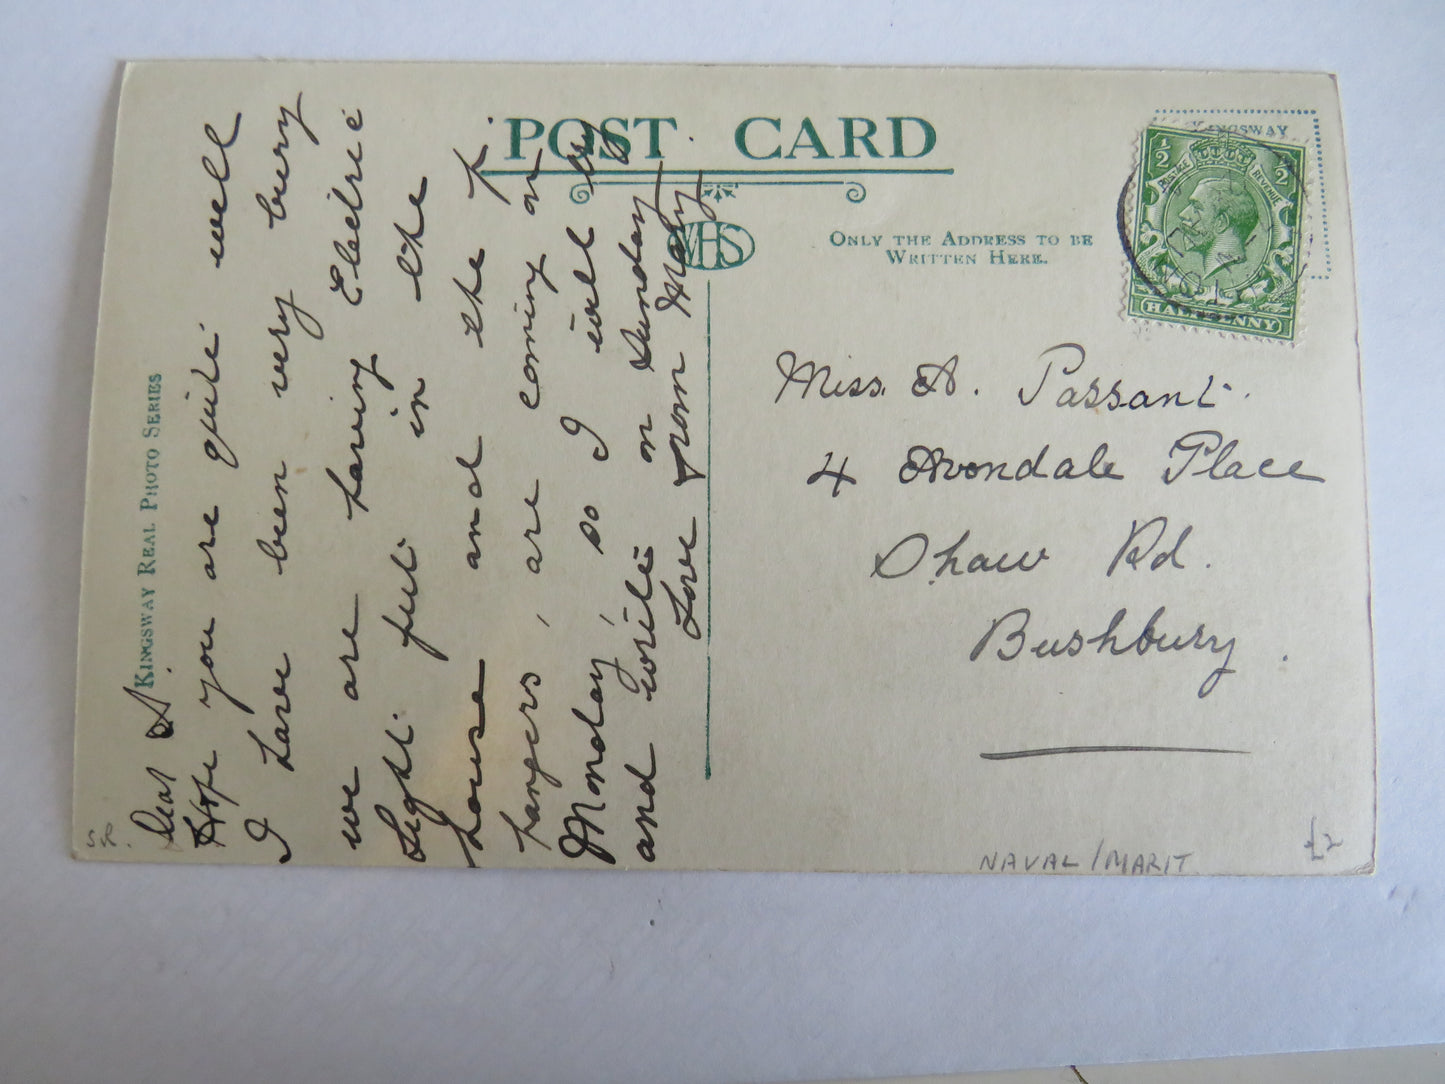 POST CARD
KINGSWAY REAL PHOTO SERIES
WHS
ONLY THE ADDRESS TO BE
WRITTEN HERE.
KINGSWAY
½ ½
POSTAGE REVENUE
HALFPENNY
Dear A.
Hope you are quite well
I have been very busy
we are having Electric
Light put in the
house and the p.
hangers, are coming on
Monday, so I will try
and write on Sunday
Love from Mary
Miss. A. Passant.
4 Avondale Place
Shaw Rd.
Bushbury.
S.R.
NAVAL/MARIT
£2